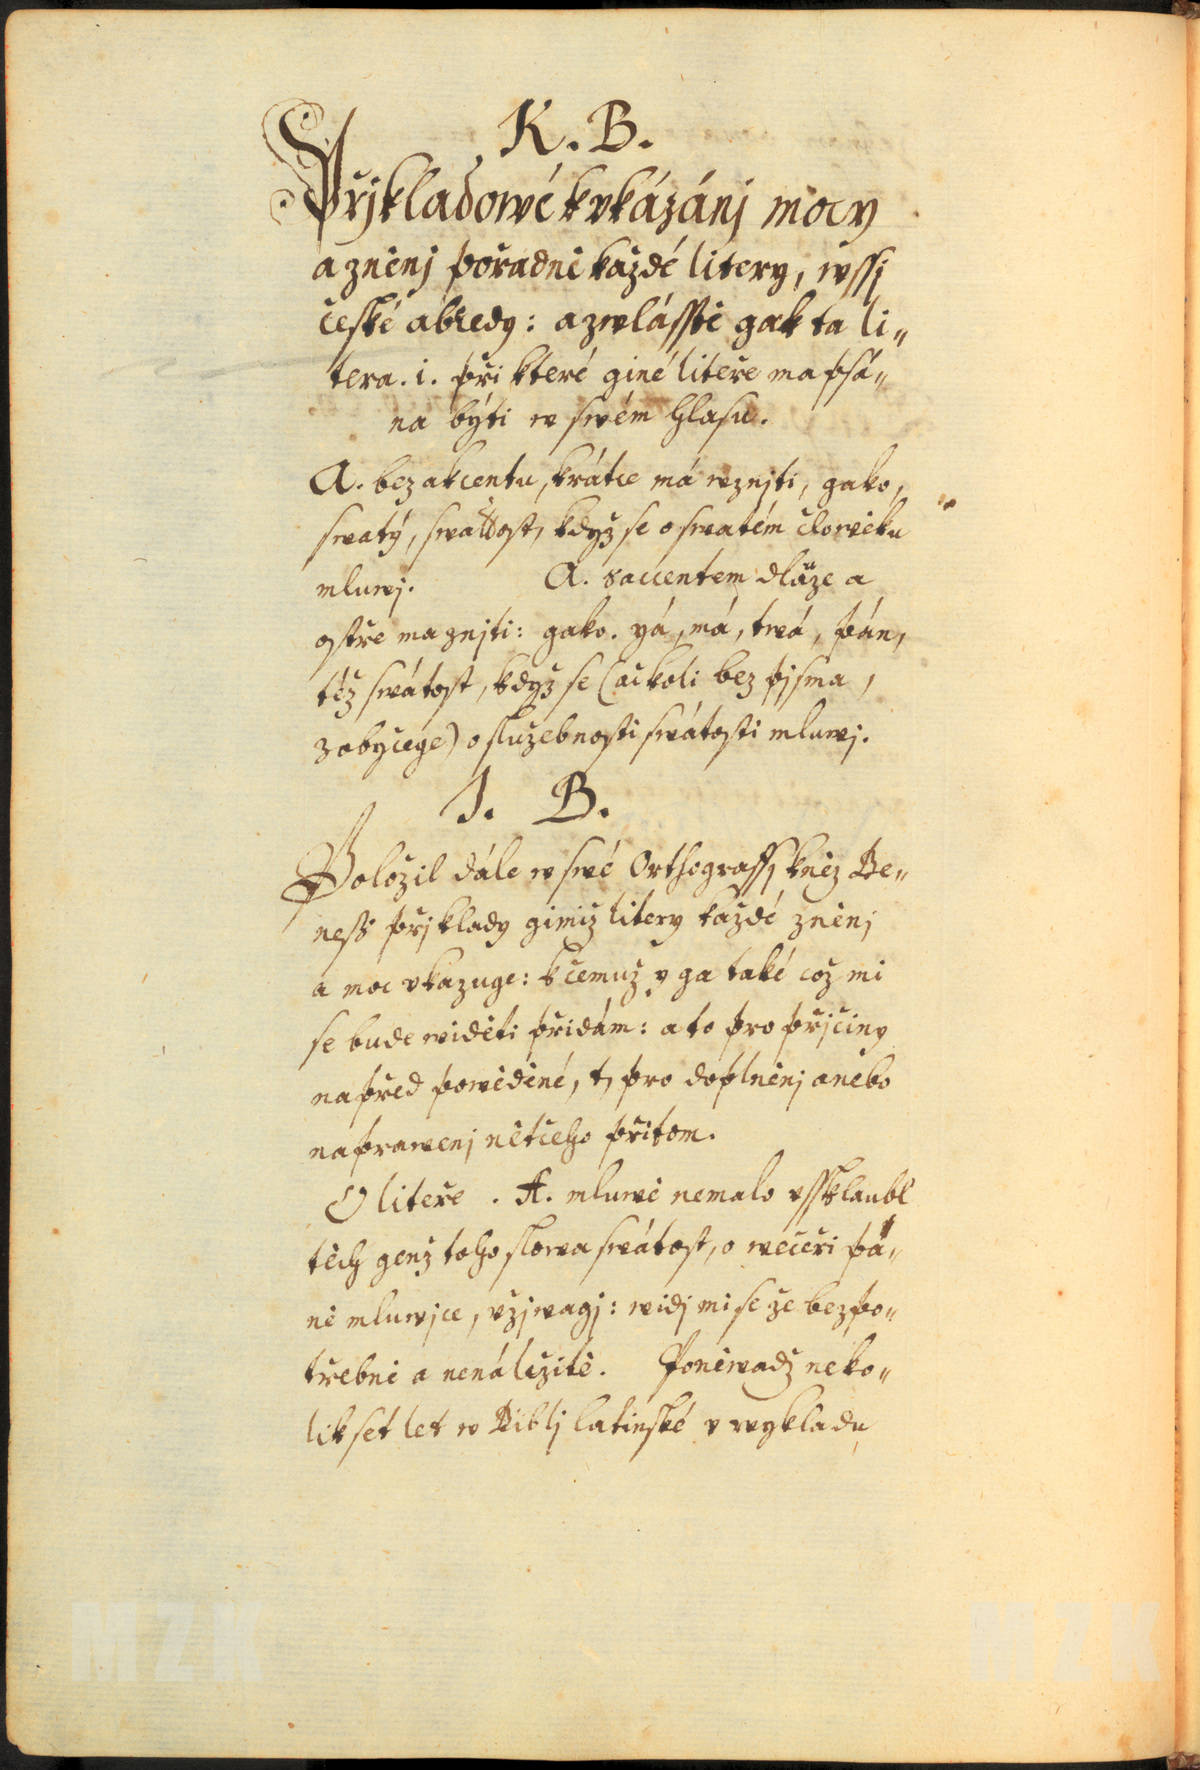 K. B.
Přjkladowé k vkázánj mocy
a zněnj pořadně každé litery, wssj
české abcedy: a zwlásstě gak ta li„
tera. i. při které giné liteře ma psá„
na býti w swém hlasu.
A. bez akcentu, krátce má wznjti, gako,
swatý, swattost, když se o swatém člowěku
mluwj. A. s accentem dlúze a
ostře ma znjti: gako. yá, má, twá, pán,
též swátost, když se (ačkoli bez pjsma,
z obyčege) o služebnosti swátosti mluwj.
J. B.
Položil dále w swé Orthograffj kněz Be„
ness přjklady gimiž litery každé zněnj
a moc vkazuge: k čemuž y ga také což mi
se bude widěti přidám: a to pro přjčiny
napřed powěděné, t, pro doplněnj anebo
naprawenj nětčeho přitom.
O liteře . A. mluwě nemalo vssklaubl
těch genž toho slowa swátost, o večeři pá„
ně mluwjce, vžjwagj: widj mi se že bez po„
třebně a nenáležitě. Poněwadž něko„
lik set let w Biblj latinské v wykladu
MZK
MZK